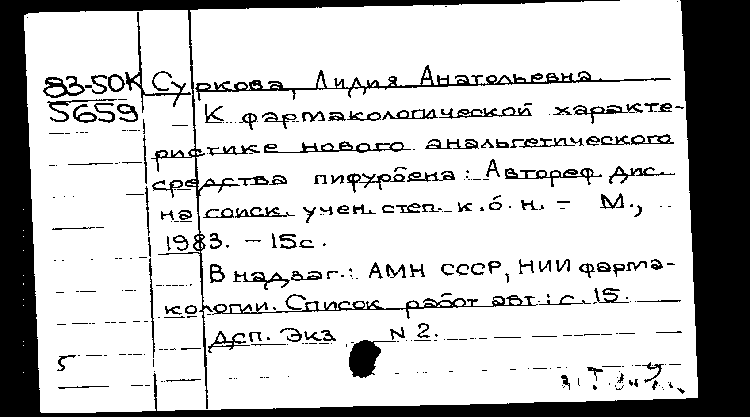 83-50К Суркова, Лидия Анатольевна.
5659 К фармакологической характе-
ристике нового анальгетического
средства пифурбена: Автореф. дис.
на соиск. учен. степ. к.б.н. - М.,
1983. - 15с.
В надзаг.: АМН СССР, НИИ фарма-
кологии. Список работ авт.: с. 15.
Дсп. Экз N 2.
5